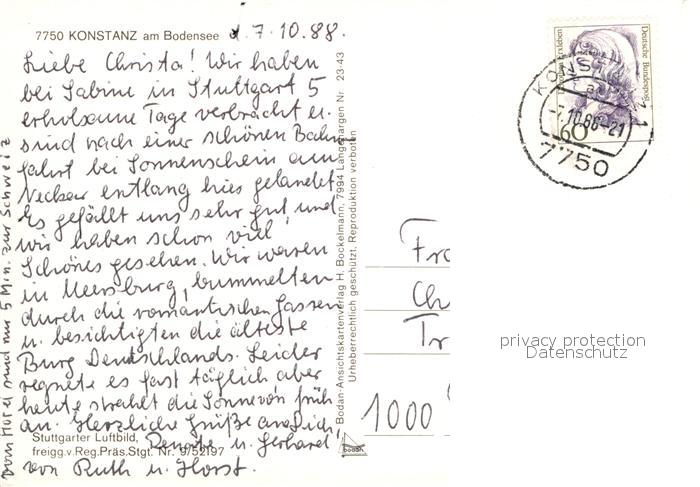 7750 KONSTANZ am Bodensee d. 7.10.88.
Liebe Christa! Wir haben
bei Sabine in Stuttgart 5
erholsame Tage verbracht u.
sind nach einer schönen Bahn
fahrt bei Sonnenschein am
Neckar entlang hier gelandet.
Es gefällt uns sehr gut und
wir haben schon viel
Schönes gesehen. Wir waren
in Meersburg, bummelten
durch die romantischen Gassen
u. besichtigten die älteste
Burg Deutschlands. Leider
regnete es fast täglich aber
heute strahlt die Sonne von früh
an. Herzliche Grüße an Dich,
Renate u. Gerhard
von Ruth u. Horst.
Vom Hotel sind nur 5 Min. zur Schweiz
Stuttgarter Luftbild,
freigg.v.Reg.Präs.Stgt. Nr. 9/52197
Bodan-Ansichtskartenverlag H. Bockelmann, 7994 Langenargen Nr. 23-43
Urheberrechtlich geschützt, Reproduktion verboten
bodan
Deutsche Bundespost
60
KONST
7.10.88-21
7750
Fr
Ch
Tr
1000
privacy protection
Datenschutz